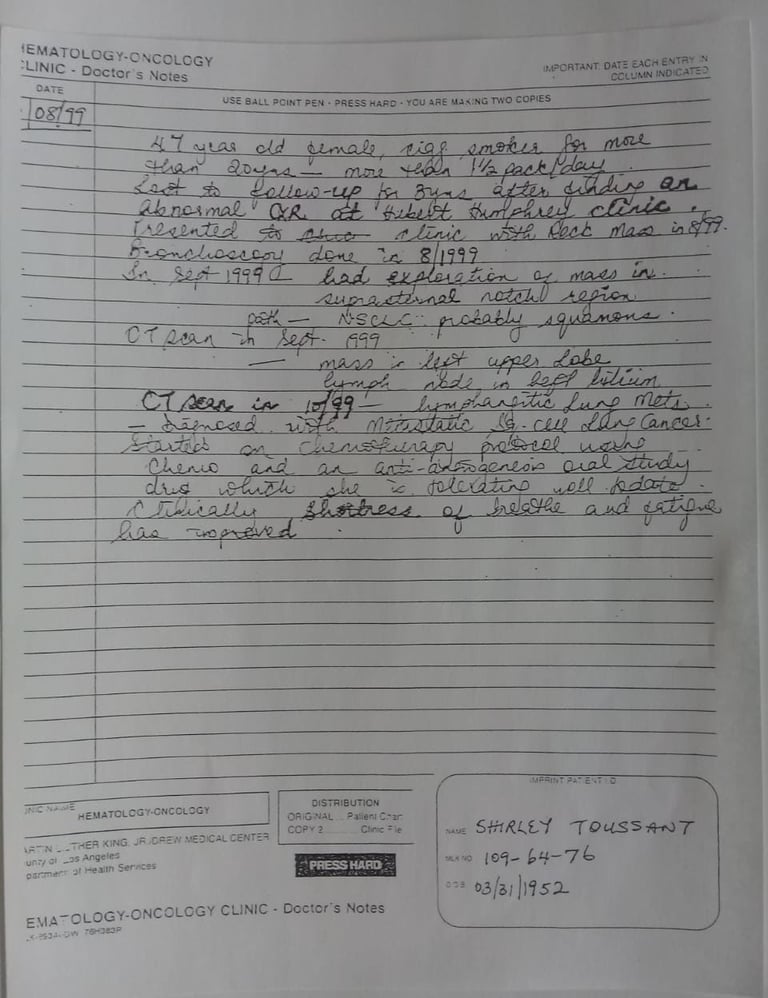 HEMATOLOGY-ONCOLOGY
CLINIC - Doctor's Notes
IMPORTANT: DATE EACH ENTRY IN
COLUMN INDICATED
DATE
USE BALL POINT PEN - PRESS HARD - YOU ARE MAKING TWO COPIES
08/99
47 year old female, cig. smoker for more
than 20yrs — more than 1½ pack/day
Lost to follow-up for 3yrs after finding an
abnormal CXR at Hubert Humphrey clinic.
Presented to clinic with Neck Mass in 8/99.
Bronchoscopy done in 8/1999
In Sept 1999 had exploration of mass in
suprasternal notch region
path — NSCLC probably squamous.
CT scan in Sept. 1999
— mass in left upper lobe
lymph node in left hilium
CT scan in 10/99 — lymphangitic Lung Mets.
— Diagnosed with Metastatic Sq-cell Lung Cancer.
Started on Chemotherapy protocol using
Chemo and an anti-angiogenesis oral study
drug which she is tolerating well todate.
Clinically shortness of breathe and fatigue
has improved.
CLINIC NAME
HEMATOLOGY-ONCOLOGY
DISTRIBUTION
ORIGINAL ... Patient Chart
COPY 2 ... Clinic File
ARTIN LUTHER KING, JR./DREW MEDICAL CENTER
unty of Los Angeles
partment of Health Services
PRESS HARD
EMATOLOGY-ONCOLOGY CLINIC - Doctor's Notes
IMPRINT PATIENT I.D.
NAME SHIRLEY TOUSSANT
MLK NO 109-64-76
DOB 03/31/1952